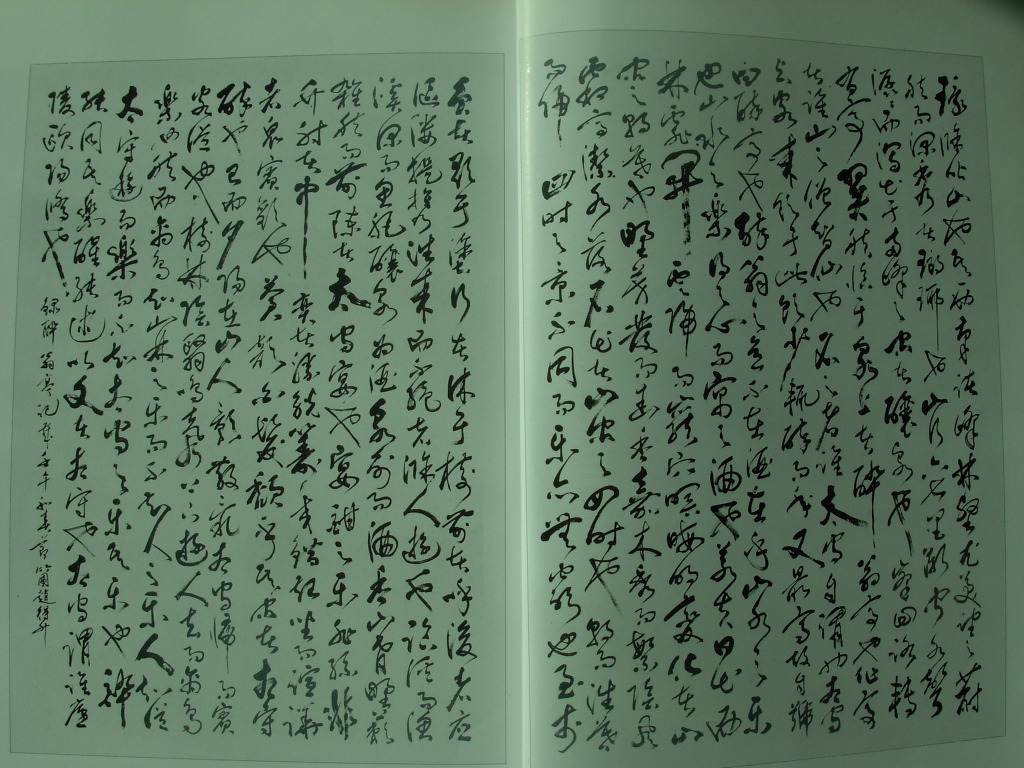 環滁皆山也其西南諸峰林壑尤美望之蔚
然而深秀者琅琊也山行六七里漸聞水聲
潺潺而瀉出于兩峰之間者釀泉也峰回路轉
有亭翼然臨于泉上者醉翁亭也作亭
者誰山之僧智仙也名之者誰太守自謂也太守
與客來飲于此飲少輒醉而年又最高故自號
曰醉翁也醉翁之意不在酒在乎山水之間
也山水之樂得之心而寓之酒也若夫日出而
林霏開雲歸而巖穴暝晦明變化者山
間之朝暮也野芳發而幽香嘉木秀而繁陰風
霜高潔水落石出者山間之四時也朝而往暮
而歸四時之景不同而樂亦無窮也至於
負者歌于塗行者休于樹前者呼後者應
傴僂提攜往來而不絕者滁人遊也臨溪而漁
溪深而魚肥釀泉为酒泉冽而酒香山肴野蔌
雜然而前陳者太守宴也宴酣之樂非絲非
竹射者中弈者勝觥籌交錯起坐而諠譁
者眾賓歡也蒼顏白髮頹乎其間者太守
醉也已而夕陽在山人影散亂太守歸而賓
客從也樹林陰翳鳴聲上下遊人去而禽鳥
樂也然而禽鳥知山林之樂而不知人之樂人知從
太守遊而樂而不知太守之樂其樂也醉
能同其樂醒能述以文者太守也太守謂誰廬
陵歐陽修也
錄醉翁亭記